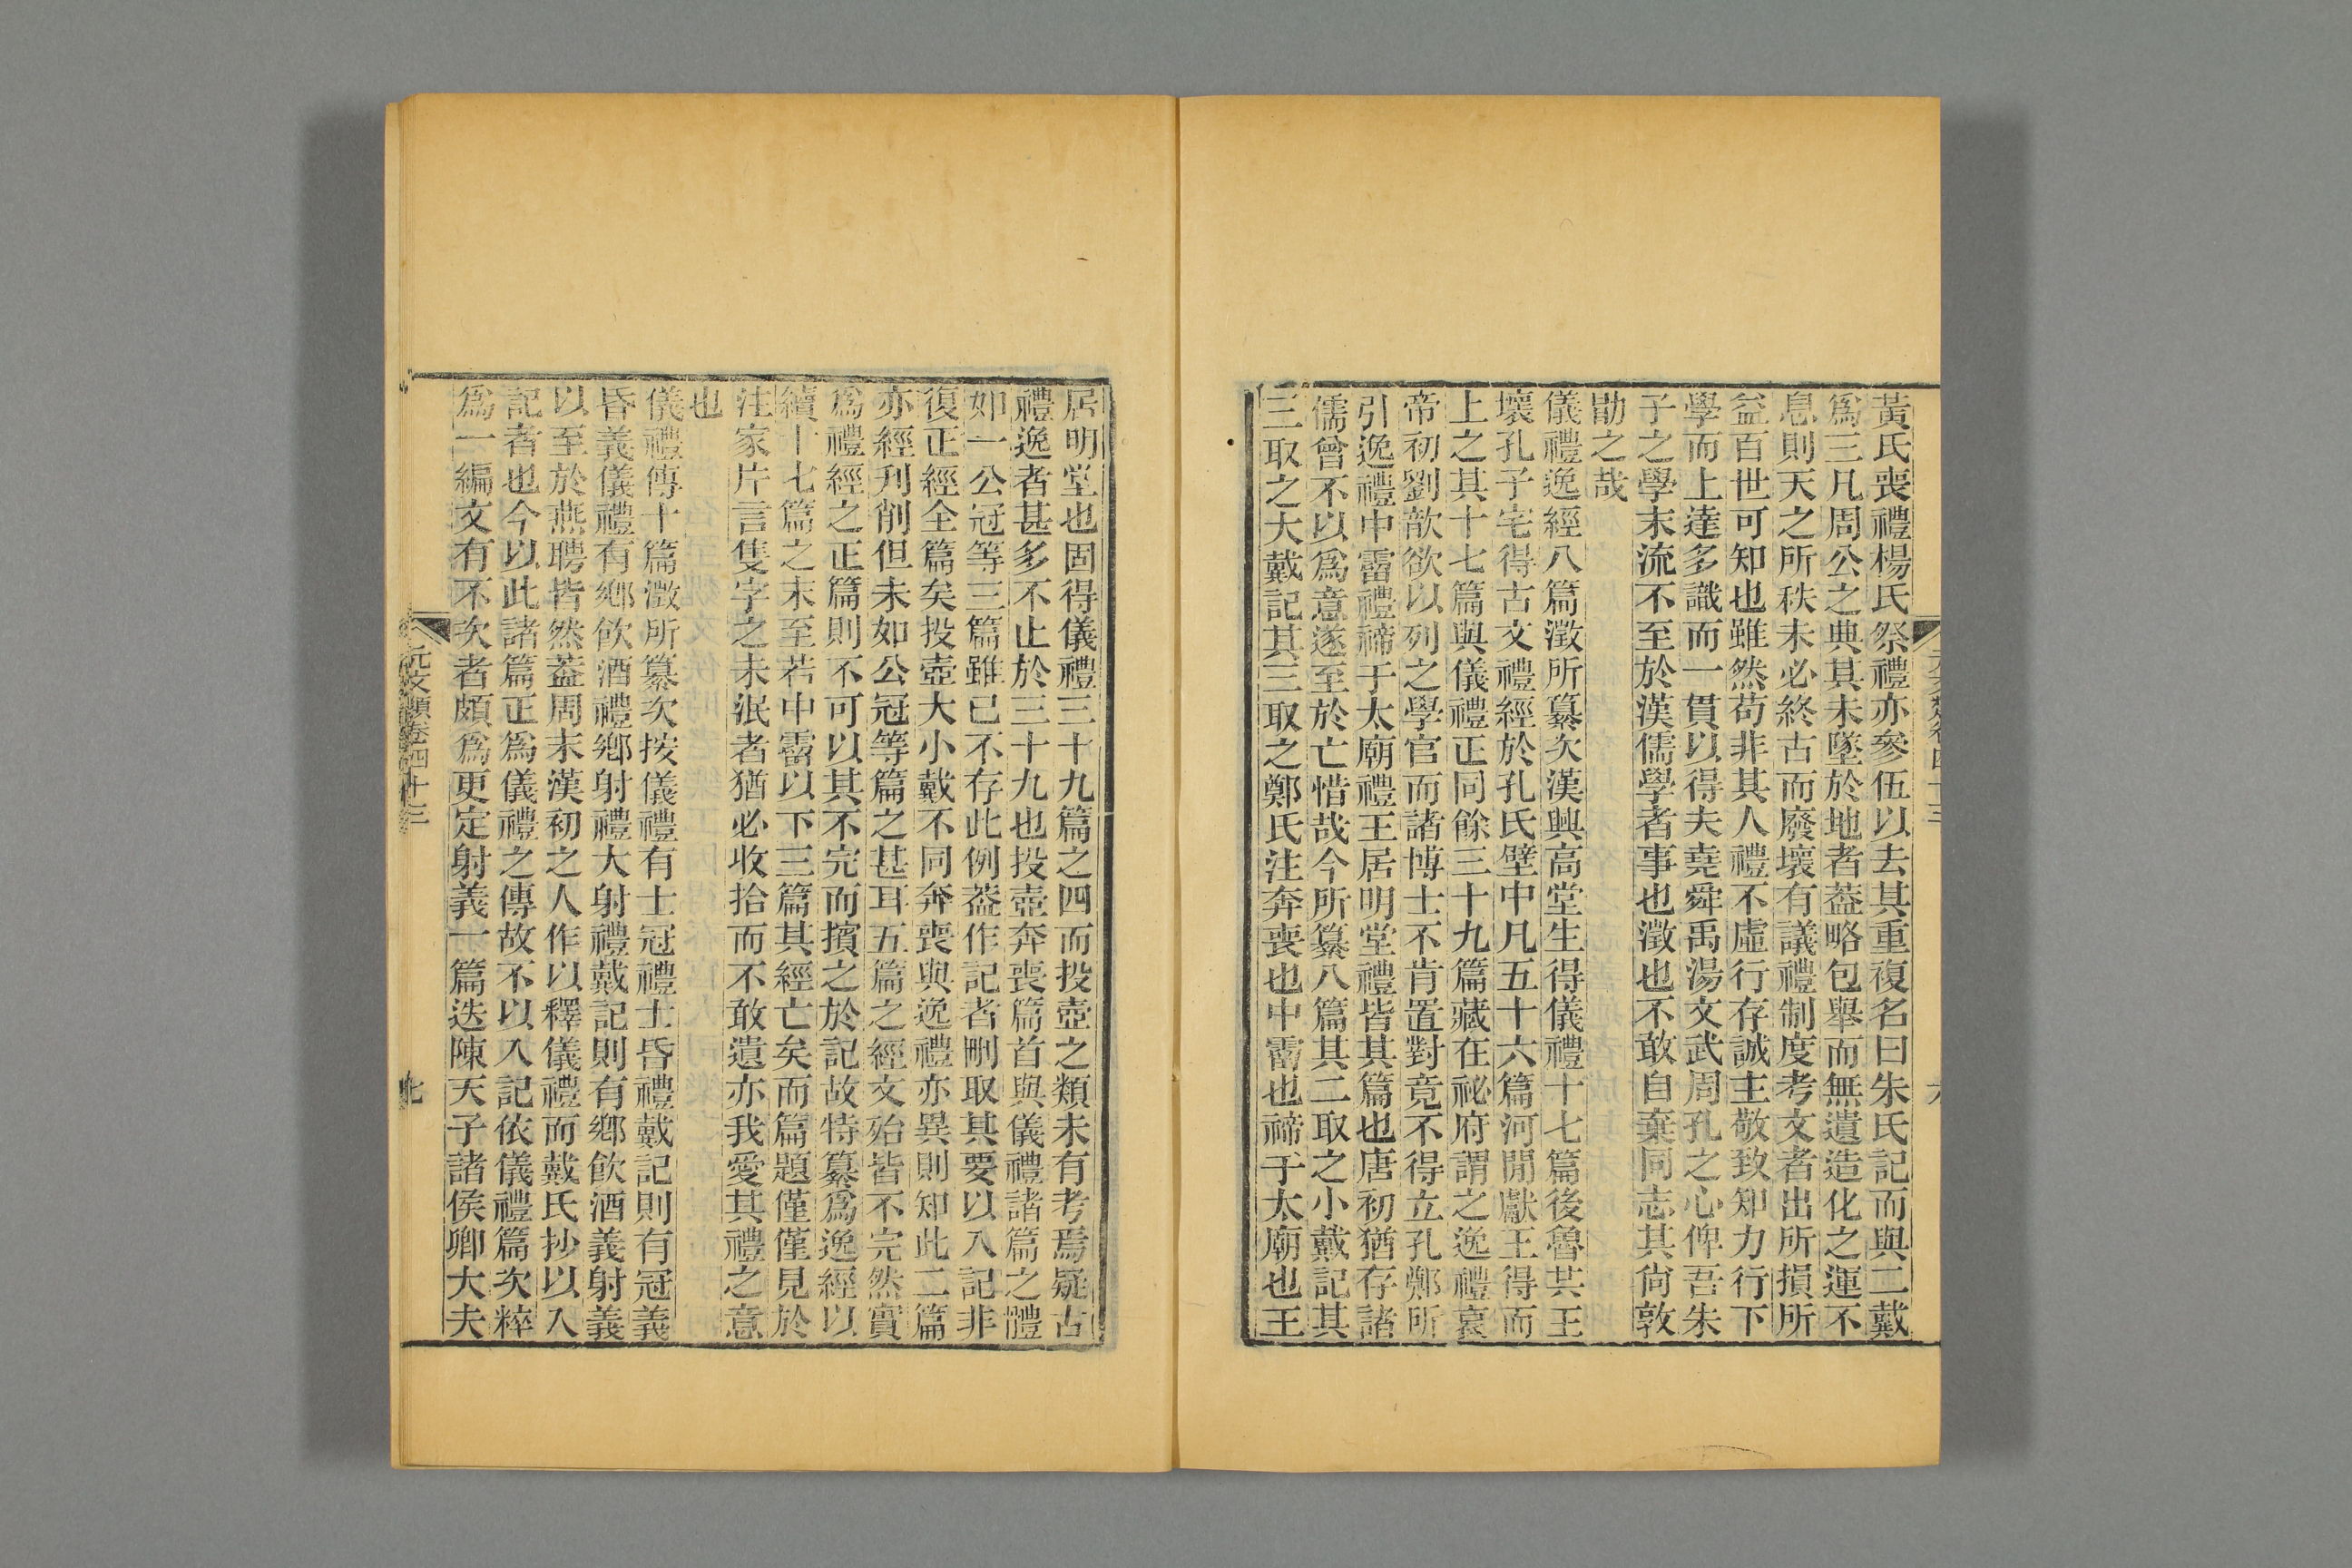 黃氏喪禮楊氏祭禮亦參伍以去其重複名曰朱氏記而與二戴
爲三凡周公之典其未墜於地者葢略包舉而無遺造化之運不
息則天之所秩未必終古而廢壞有議禮制度考文者出所損所
益百世可知也雖然苟非其人禮不虛行存誠主敬致知力行下
學而上達多識而一貫以得夫堯舜禹湯文武周孔之心俾吾朱
子之學末流不至於漢儒學者事也澂也不敢自棄同志其尙敦
勖之哉
儀禮逸經八篇澂所纂次漢興高堂生得儀禮十七篇後魯共王
壞孔子宅得古文禮經於孔氏壁中凡五十六篇河閒獻王得而
上之其十七篇與儀禮正同餘三十九篇藏在祕府謂之逸禮哀
帝初劉歆欲以列之學官而諸博士不肯置對竟不得立孔鄭所
引逸禮中霤禮禘于太廟禮王居明堂禮皆其篇也唐初猶存諸
儒曾不以爲意遂至於亡惜哉今所纂八篇其二取之小戴記其
三取之大戴記其三取之鄭氏注奔喪也中霤也禘于太廟也王
元文類卷四十三 六
居明堂也固得儀禮三十九篇之四而投壺之類未有考焉疑古
禮逸者甚多不止於三十九也投壺奔喪篇首與儀禮諸篇之體
如一公冠等三篇雖已不存此例葢作記者刪取其要以入記非
復正經全篇矣投壺大小戴不同奔喪與逸禮亦異則知此二篇
亦經刋削但未如公冠等篇之甚耳五篇之經文殆皆不完然實
爲禮經之正篇則不可以其不完而擯之於記故特纂爲逸經以
續十七篇之末至若中霤以下三篇其經亡矣而篇題僅僅見於
注家片言隻字之未泯者猶必收拾而不敢遺亦我愛其禮之意
也
儀禮傳十篇澂所纂次按儀禮有士冠禮士昏禮戴記則有冠義
昏義儀禮有鄉飮酒禮鄉射禮大射禮戴記則有鄉飮酒義射義
以至於燕聘皆然葢周末漢初之人作以釋儀禮而戴氏抄以入
記者也今以此諸篇正爲儀禮之傳故不以入記依儀禮篇次粹
爲一編文有不次者頗爲更定射義一篇迭陳天子諸侯卿大夫
元文類卷四十三 七